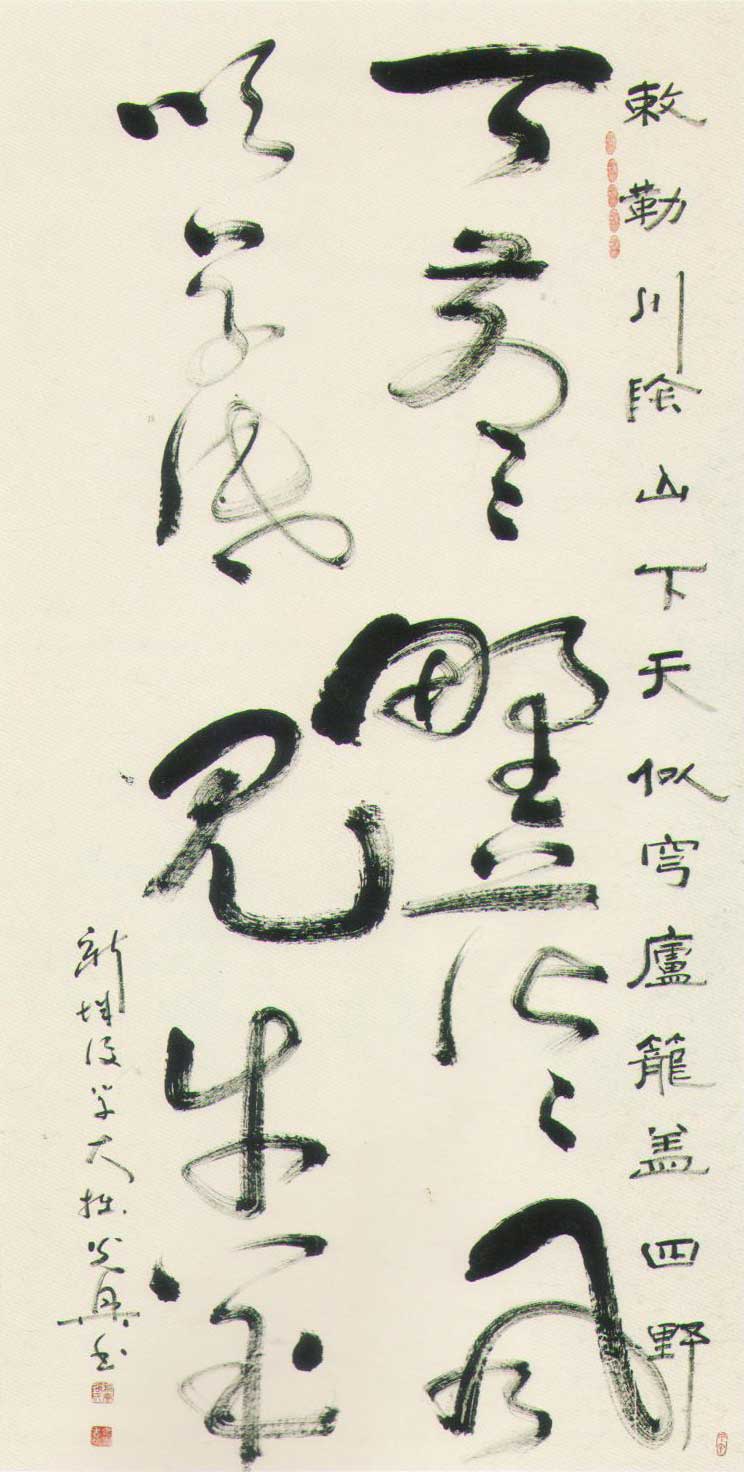 敕勒川陰山下天似穹廬籠盖四野
天蒼〻野茫〻風
吹草低見牛羊
新後学大拙書